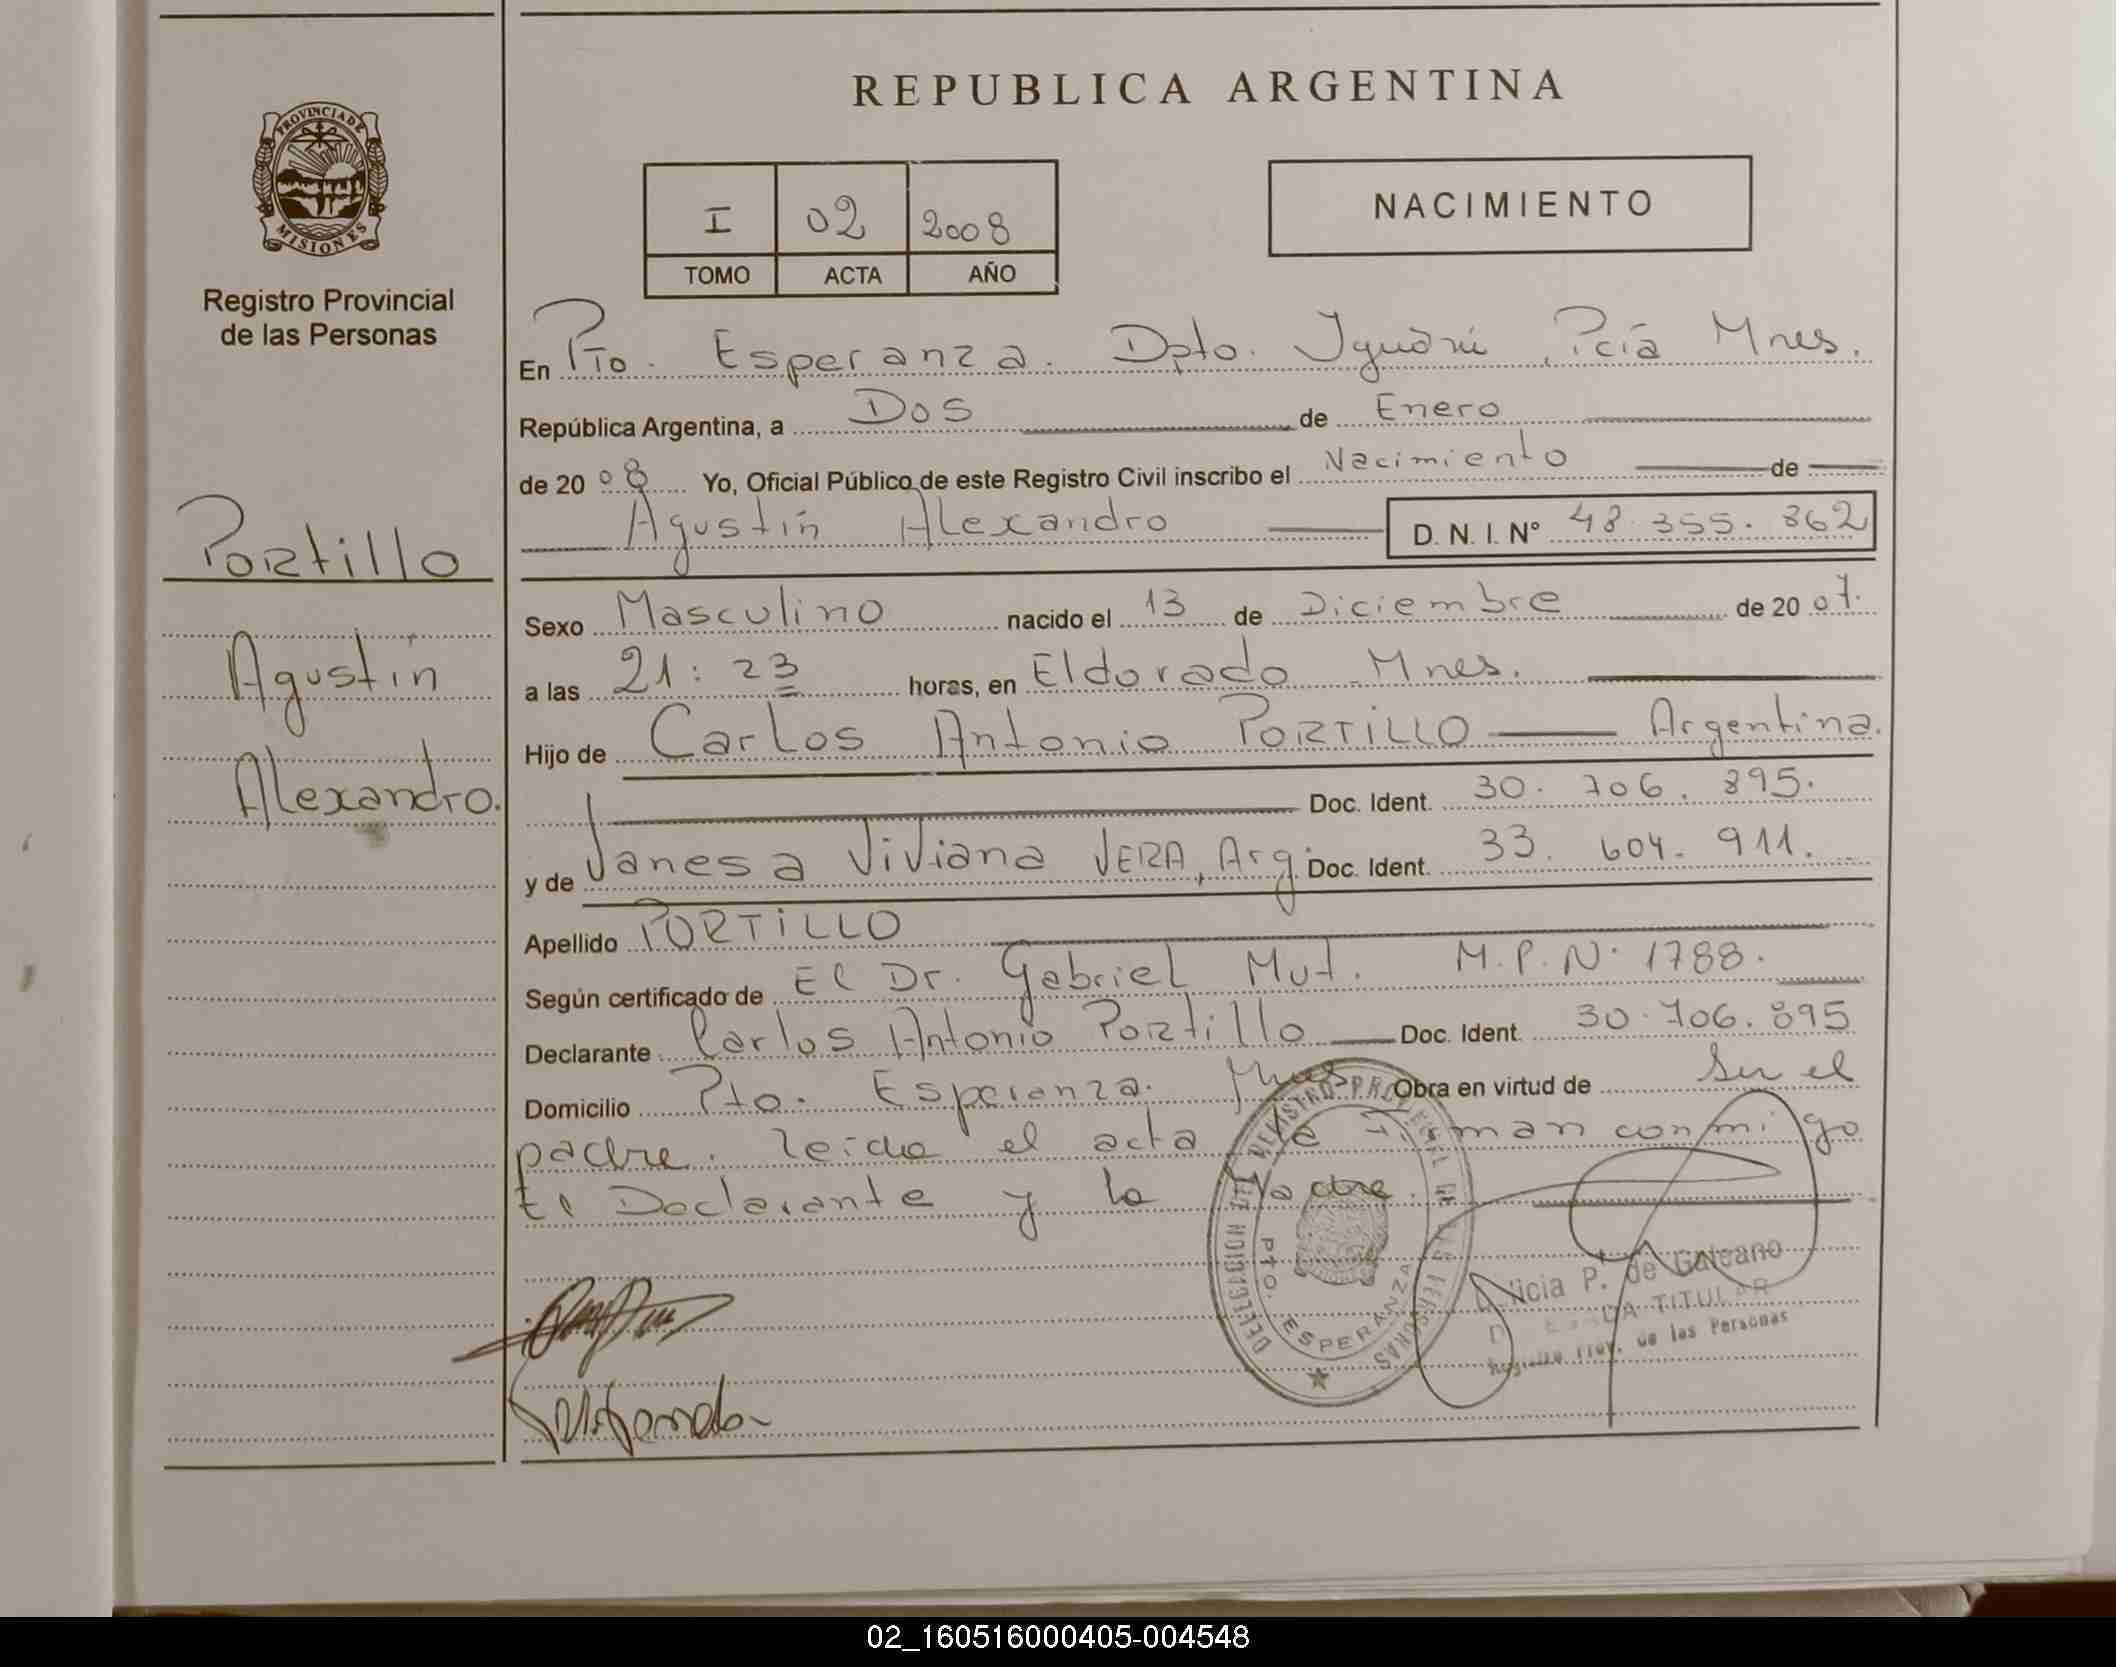 REPUBLICA ARGENTINA
PROVINCIA DE
MISIONES
Registro Provincial
de las Personas
I 02 2008
TOMO ACTA AÑO
NACIMIENTO
En Pto. Esperanza. Dpto. Iguazú, Pcia Mnes.
República Argentina, a Dos de Enero
de 2008 Yo, Oficial Público de este Registro Civil inscribo el Nacimiento de
Agustín Alexandro D. N. I. N° 48.355.862
Portillo
Agustín
Alexandro.
Sexo Masculino nacido el 13 de Diciembre de 2007.
a las 21:23 horas, en Eldorado Mnes.
Hijo de Carlos Antonio PORTILLO Argentina.
Doc. Ident. 30.706.895.
y de Vanesa Viviana VERA, Arg. Doc. Ident. 33.604.911.
Apellido PORTILLO
Según certificado de El Dr. Gabriel Mut. M.P.N. 1788.
Declarante Carlos Antonio Portillo Doc. Ident. 30.706.895
Domicilio Pto. Esperanza. Mnes Obra en virtud de Ser el
padre. leida el acta la Firman conmigo
El Declarante y la Madre.
DELEGACION DEL REGISTRO PROVINCIAL DE LAS PERSONAS
PTO. ESPERANZA
P. de Galeano
TITULAR
Registro Prov. de las Personas
02_160516000405-004548